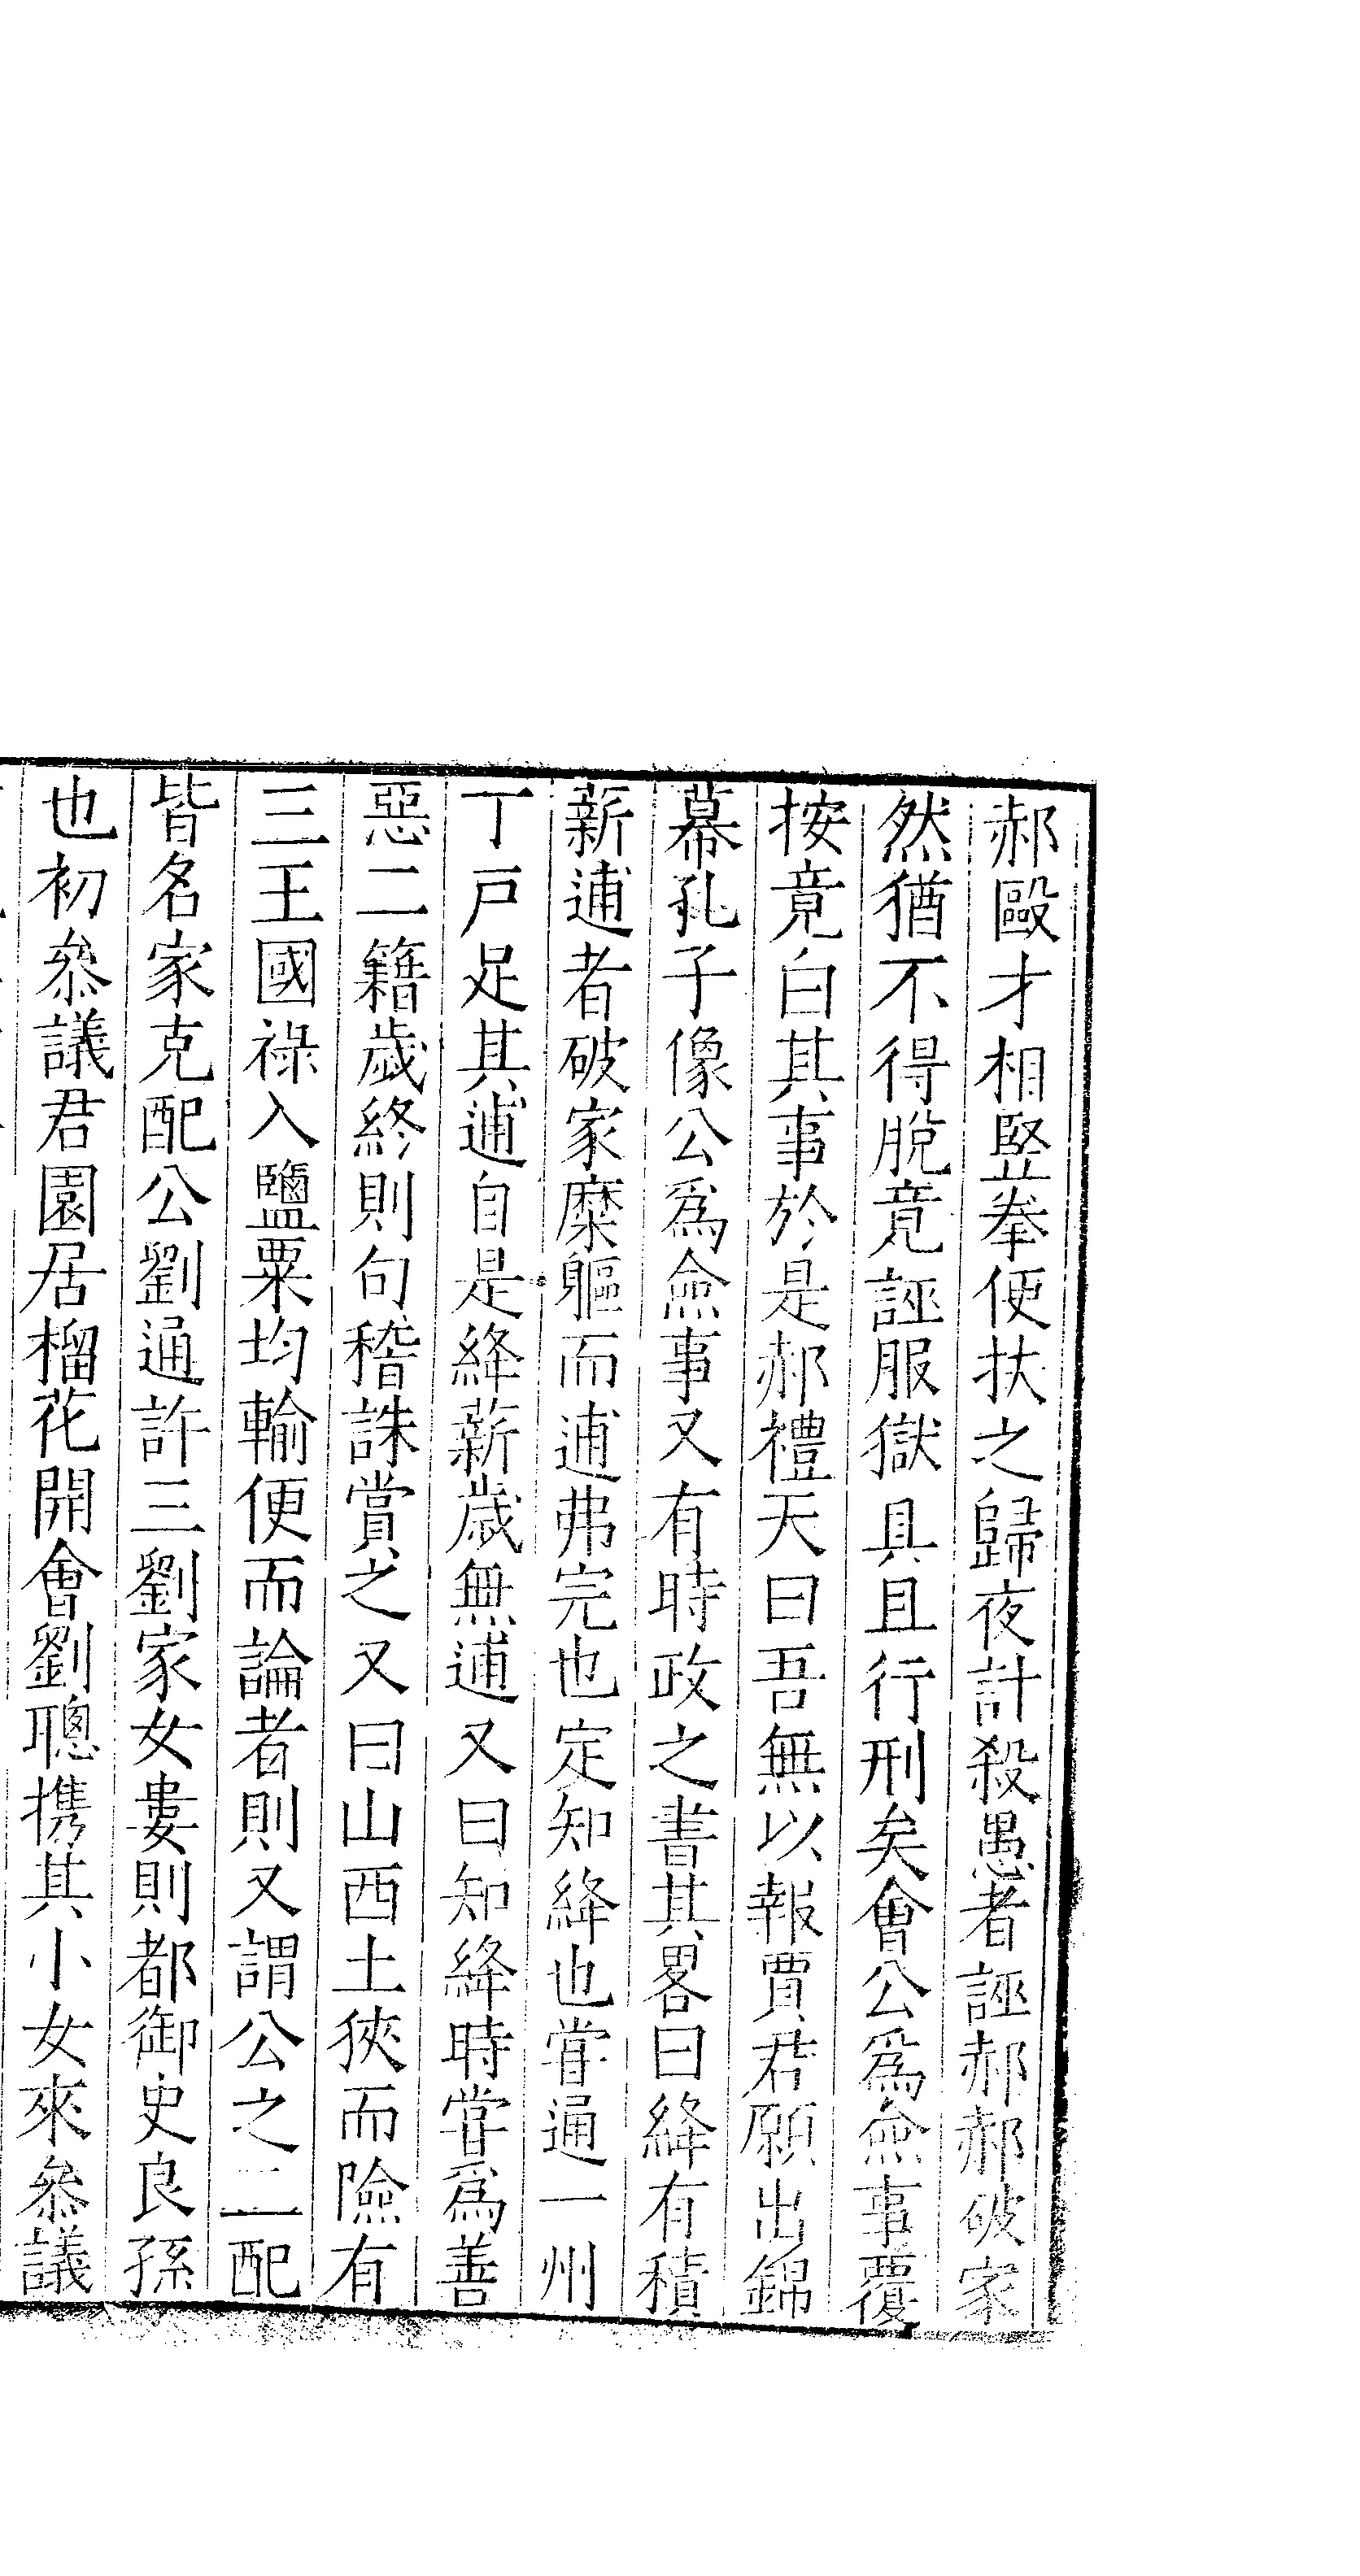 郝毆才相竪拳便扶之歸夜計殺愚者誣郝郝破家
然猶不得脫竟誣服獄具且行刑矣會公爲僉事覆
按竟白其事於是郝禮天曰吾無以報賈君願出錦
幕孔子像公爲僉事又有時政之書其畧曰絳有積
薪逋者破家糜軀而逋弗完也定知絳也甞通一州
丁戸足其逋自是絳薪歳無逋又曰知絳時甞爲善
惡二籍歳終則句稽誅賞之又曰山西土狹而險有
三王國祿入鹽粟均輸便而論者則又謂公之二配
皆名家克配公劉通許三劉家女婁則都御史良孫
也初叅議君園居榴花開會劉聰携其小女來叅議